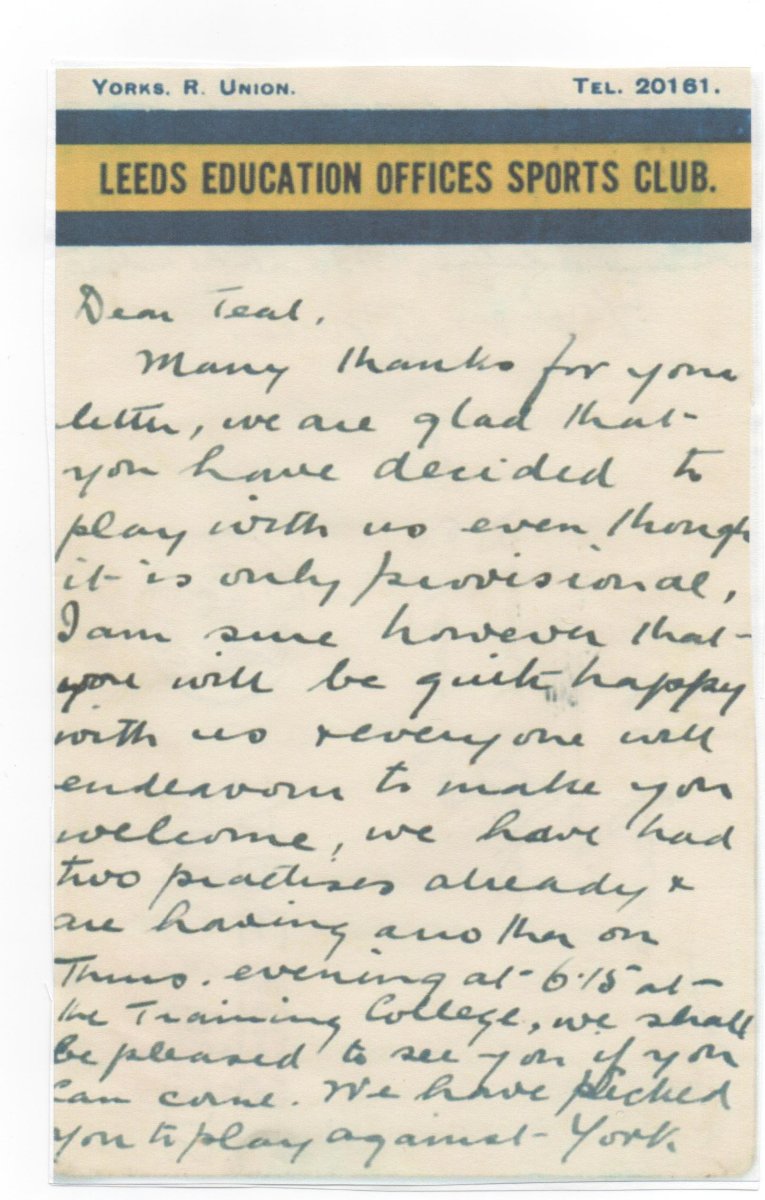 YORKS. R. UNION. TEL. 20161.
LEEDS EDUCATION OFFICES SPORTS CLUB.
Dear Teal,
Many thanks for your
letter, we are glad that
you have decided to
play with us even though
it is only provisional,
I am sure however that
you will be quite happy
with us & everyone will
endeavour to make you
welcome, we have had
two practises already &
are having another on
Thurs. evening at 6.15 at
the Training College, we shall
be pleased to see you if you
can come. We have picked
you to play against York.